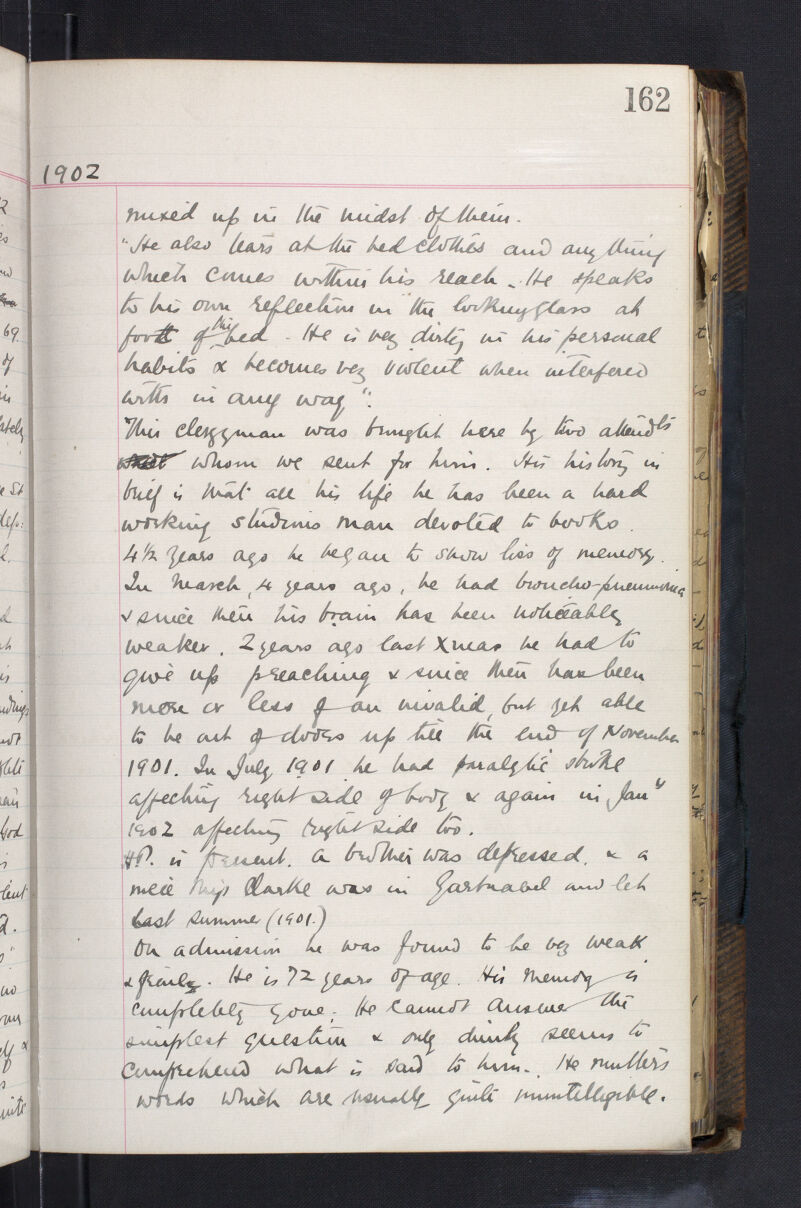 162
1902
mixed up in the midst of them.
"He also tears at the bed clothes and anything
which comes within his reach. He speaks
to his own reflection in the looking glass at
foot of his bed. He is very dirty in his personal
habits & becomes very violent when interfered
with in any way".
This clergyman was brought here by two attendts
whom we sent for him. His history in
brief is that all his life he has been a hard
working studious man devoted to books.
4½ years ago he began to show loss of memory.
In March, 4 years ago, he had broncho-pneumonia
& since then his brain has been noticeably
weaker. 2 years ago last Xmas he had to
give up preaching & since then has been
more or less of an invalid, but yet able
to be out of doors up till the end of November
1901. In July 1901 he had paralytic stroke
affecting right side of body & again in Jany
1902 affecting right side too.
H.P. is present. A brother was depressed, & a
niece Miss Clarke was in Gartnavel and left
last summer (1901.)
On admission he was found to be very weak
& frail. He is 72 years of age. His memory is
completely gone. He cannot answer the
simplest question & only dimly seems to
comprehend what is said to him. He mutters
words which are usually quite unintelligible.